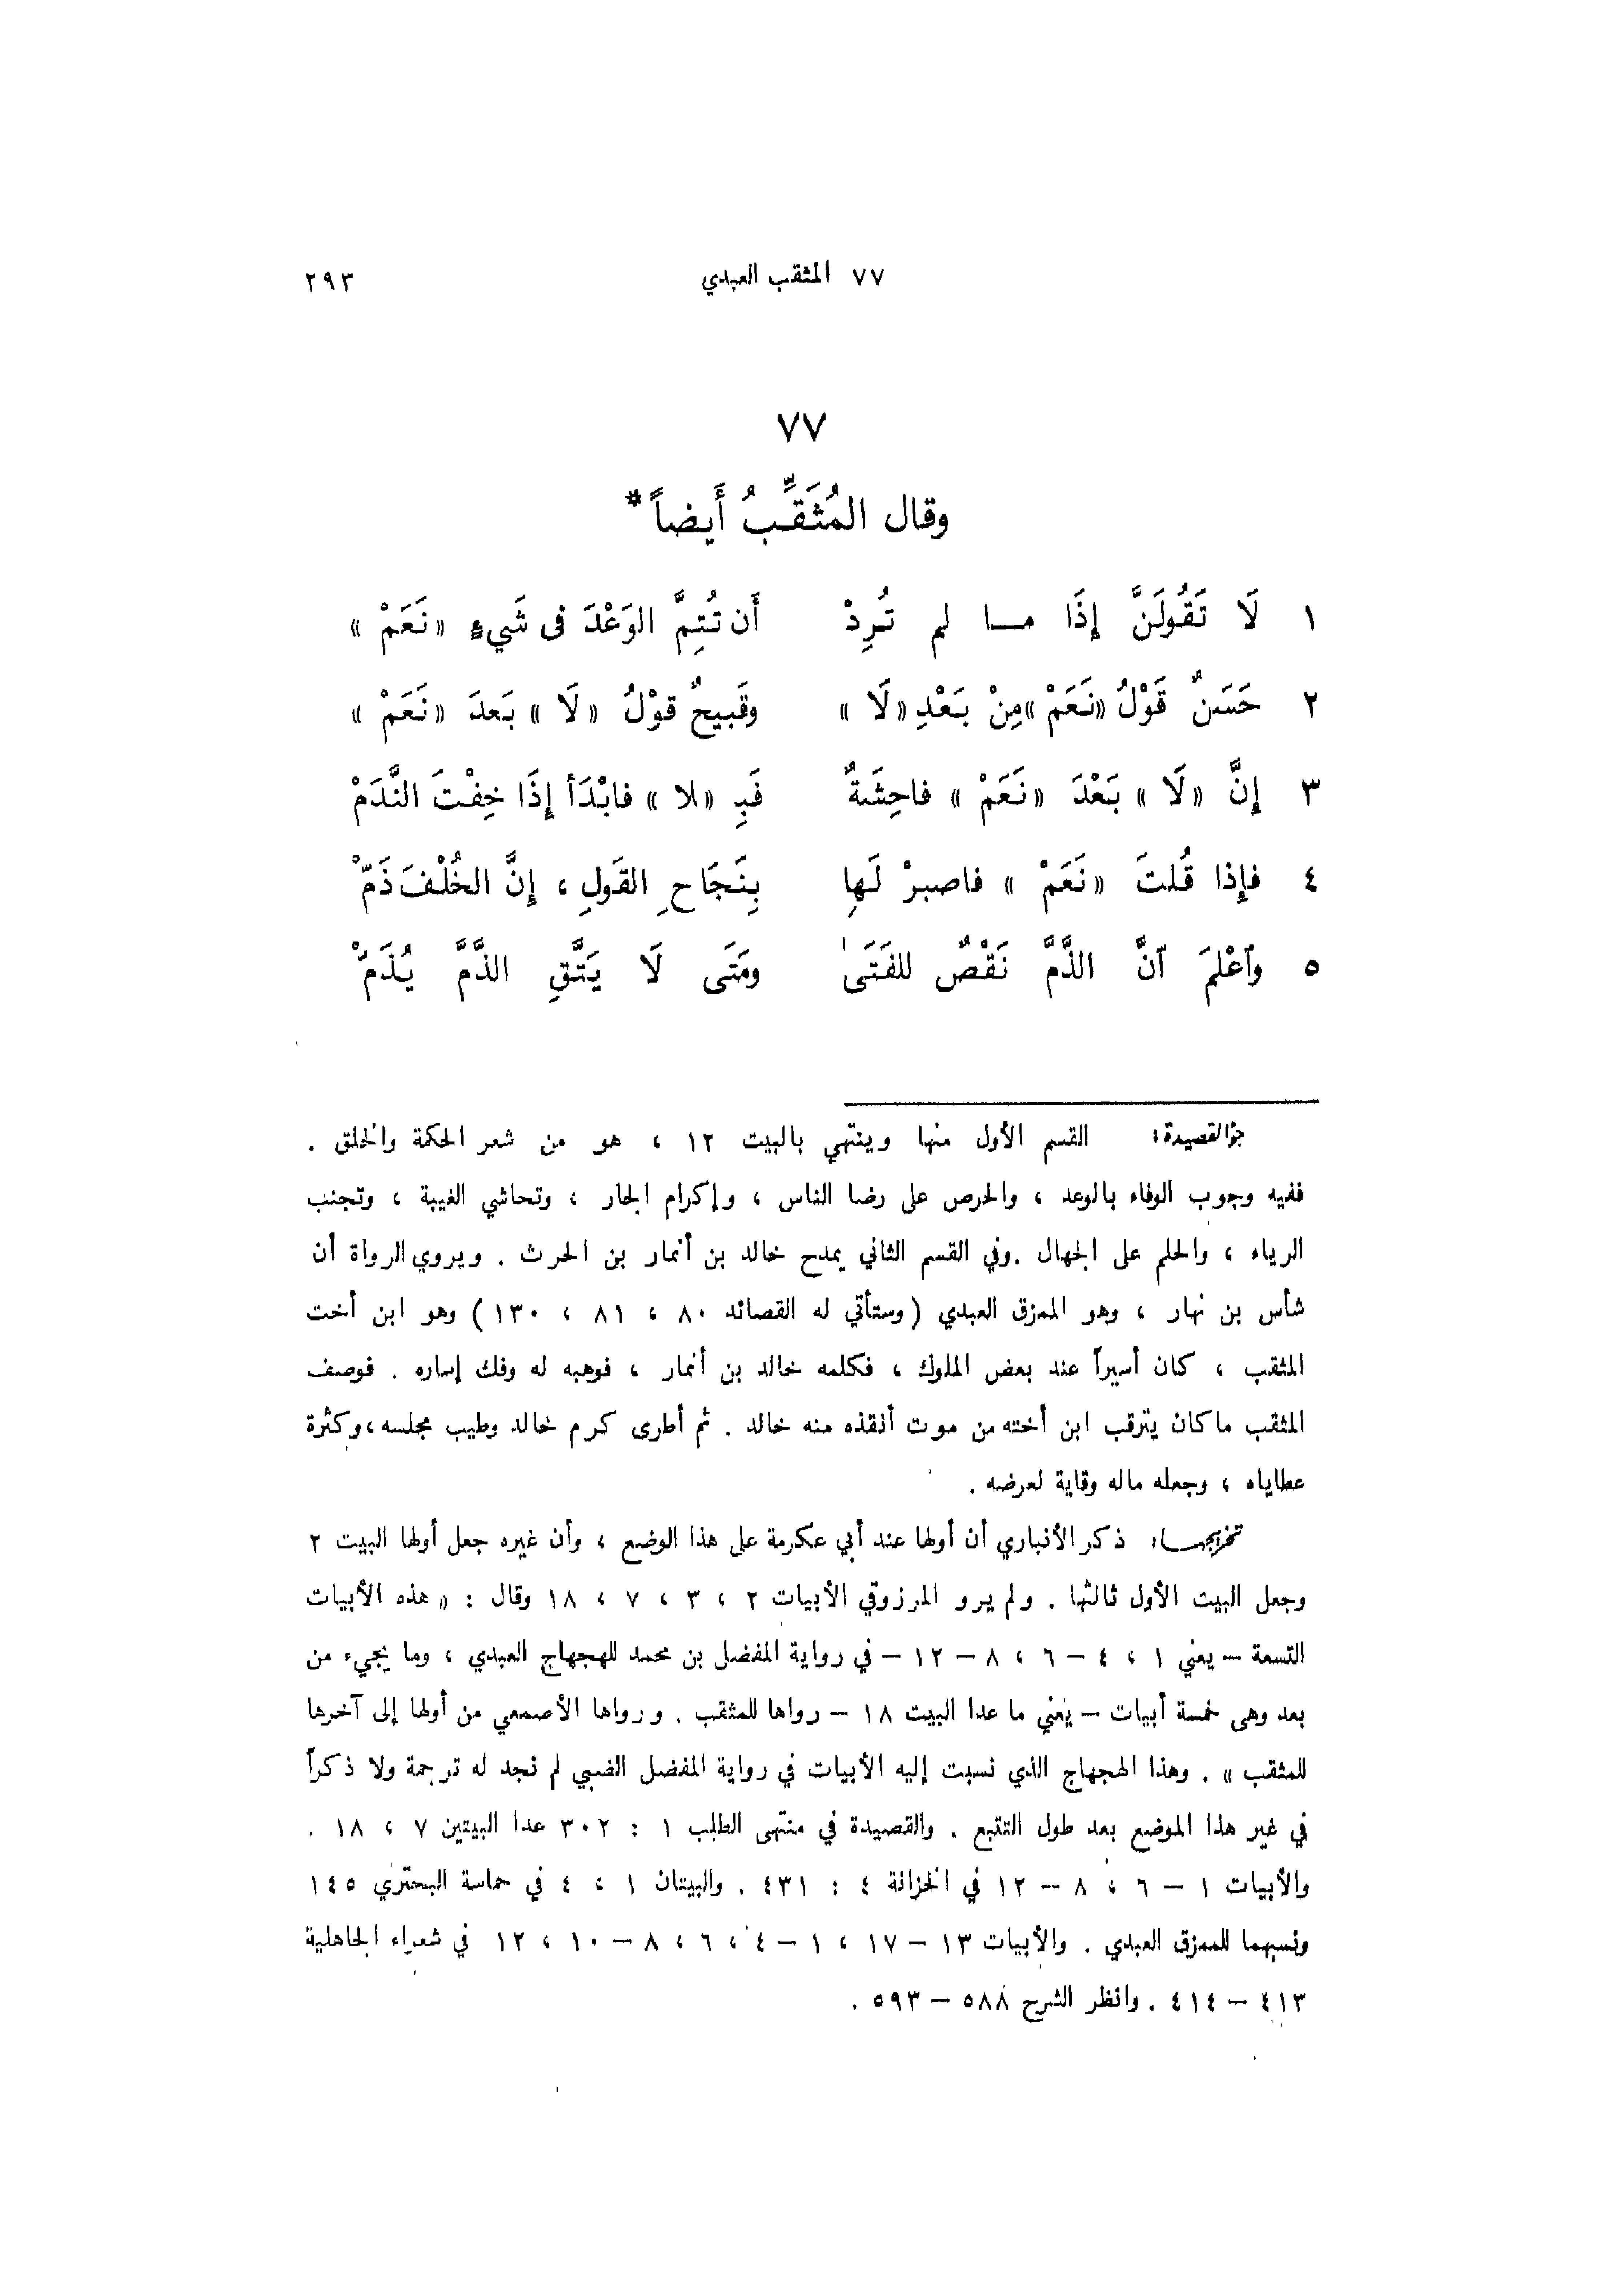 ٧٧ المثقب العبدي ٢٩٣
٧٧
وقال المُثَقِّبُ أَيضاً*
١ لَا تَقُولَنَّ إِذَا مـــا لم تُرِدْ أَن تُتِمَّ الوَعْدَ فى شَيءٍ «نَعَمْ»
٢ حَسَنٌ قَوْلُ «نَعَمْ» مِنْ بَعْدِ «لَا» وقَبيحٌ قوْلُ «لَا» بَعدَ «نَعَمْ»
٣ إِنَّ «لَا» بَعْدَ «نَعَمْ» فاحِشَةٌ فَبِ «لا» فابْدَأ إِذَا خِفْتَ النَّدَمْ
٤ فإِذا قُلتَ «نَعَمْ» فاصبرْ لَهاِ بِنَجَاحِ القَولِ ، إِنَّ الخُلْفَ ذَمّْ
٥ وآعْلمَ آنَّ الذَّمَّ نَقْصٌ للفَتَىٰ ومَتَى لَا يَتَّقِ الذَّمَّ يُذَمّْ
جوّ القصيدة: القسم الأول منها وينتهي بالبيت ١٢ ، هو من شعر الحكمة والخلق .
ففيه وجوب الوفاء بالوعد ، والحرص على رضا الناس ، وإكرام الجار ، وتحاشي الغيبة ، وتجنب
الرياء ، والحلم على الجهال . وفي القسم الثاني يمدح خالد بن أنمار بن الحرث . ويروي الرواة أن
شأس بن نهار ، وهو الممزق العبدي (وستأتي له القصائد ٨٠ ، ٨١ ، ١٣٠) وهو ابن أخت
المثقب ، كان أسيراً عند بعض الملوك ، فكلمه خالد بن أنمار ، فوهبه له وفك إساره . فوصف
المثقب ما كان يترقب ابن أخته من موت أنقذه منه خالد . ثم أطرى كرم خالد وطيب مجلسه، وكثرة
عطاياه ، وجعله ماله وقاية لعرضه .
تخريجهـــا: ذكر الأنباري أن أولها عند أبي عكرمة على هذا الوضع ، وأن غيره جعل أولها البيت ٢
وجعل البيت الأول ثالثها . ولم يرو المرزوقي الأبيات ٢ ، ٣ ، ٧ ، ١٨ وقال : « هذه الأبيات
التسعة – يعني ١ ، ٤ – ٦ ، ٨ – ١٢ – في رواية المفضل بن محمد للهجهاج العبدي ، وما يجيء من
بعد وهى خمسة أبيات – يعني ما عدا البيت ١٨ – رواها للمثقب . ورواها الأصمعي من أولها إلى آخرها
للمثقب » . وهذا الهجهاج الذي نسبت إليه الأبيات في رواية المفضل الضبي لم نجد له ترجمة ولا ذكراً
في غير هذا الموضع بعد طول التتبع . والقصيدة في منتهى الطلب ١ : ٣٠٢ عدا البيتين ٧ ، ١٨ .
والأبيات ١ – ٦ ، ٨ – ١٢ في الخزانة ٤ : ٤٣١ . والبيتان ١ ، ٤ في حماسة البحتري ١٤٥
ونسبهما للممزق العبدي . والأبيات ١٣ – ١٧ ، ١ – ٤ ، ٦ ، ٨ – ١٠ ، ١٢ في شعراء الجاهلية
٤١٣ – ٤١٤ . وانظر الشرح ٥٨٨ – ٥٩٣ .